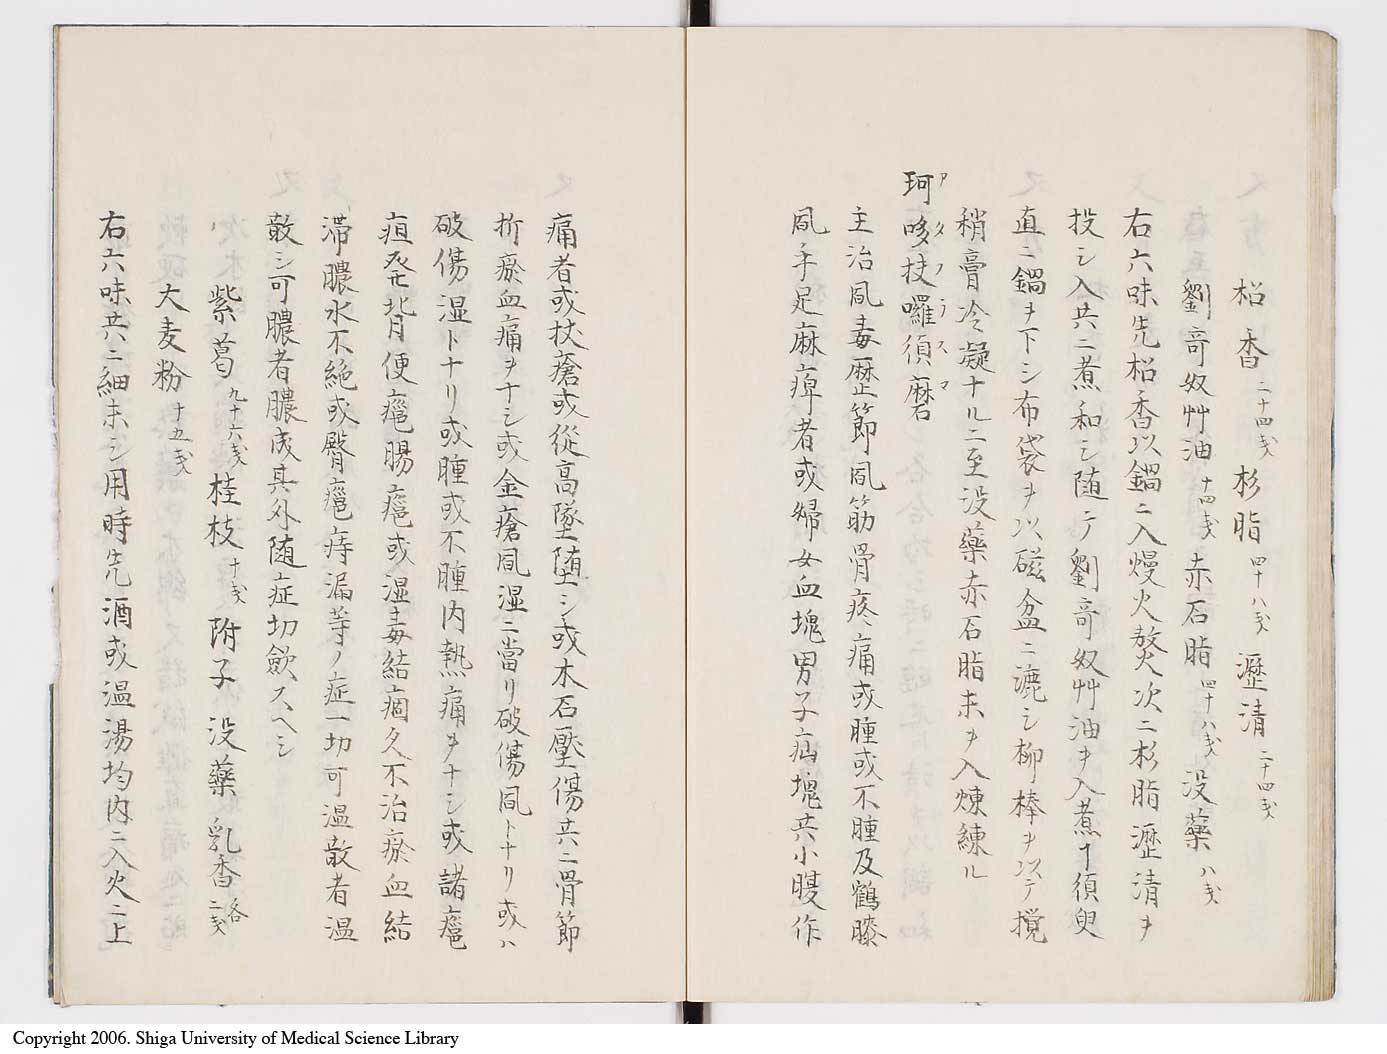 松香 二十四戔 杉脂 四十八戔 瀝清 二十四戔
劉哥奴艸油 十四戔 赤石脂 四十八戔 没藥 八戔
右六味先松香以鍋ニ入熳火熬次ニ杉脂瀝清ヲ
投シ入共ニ煮和シ随テ劉哥奴艸油ヲ入煮ヿ須臾
直ニ鍋ヲ下シ布袋ヲ以磁盆ニ漉シ柳棒ヲ以テ撹
稍膏冷凝ナルニ至没藥赤石脂末ヲ入煉練ル
珂哆抜囉須磨
アタフラスマ
主治風毒歴節風筋骨疼痛或腫或不腫及鶴膝
風手足麻痺者或婦女血塊男子疝塊共小腹作
痛者或杖瘡或從高墜堕シ或木石壓傷共ニ骨節
折瘀血痛ヲナシ或金瘡風湿ニ當リ破傷風トナリ或ハ
破傷湿トナリ或腫或不腫内熱痛ヲナシ或諸瘡
疽発背便瘡腸瘡或湿毒結痼久不治瘀血結
滞膿水不絶或臀瘡痔漏等ノ症一切可温散者温
散シ可膿者膿成其外随症切歛スヘシ
紫葛 九十六戔 桂枝 十戔 附子 没藥 乳香 各二戔
大麦粉 十五戔
右六味共ニ細末シ用時先酒或温湯均内ニ入火ニ上
Copyright 2006. Shiga University of Medical Science Library